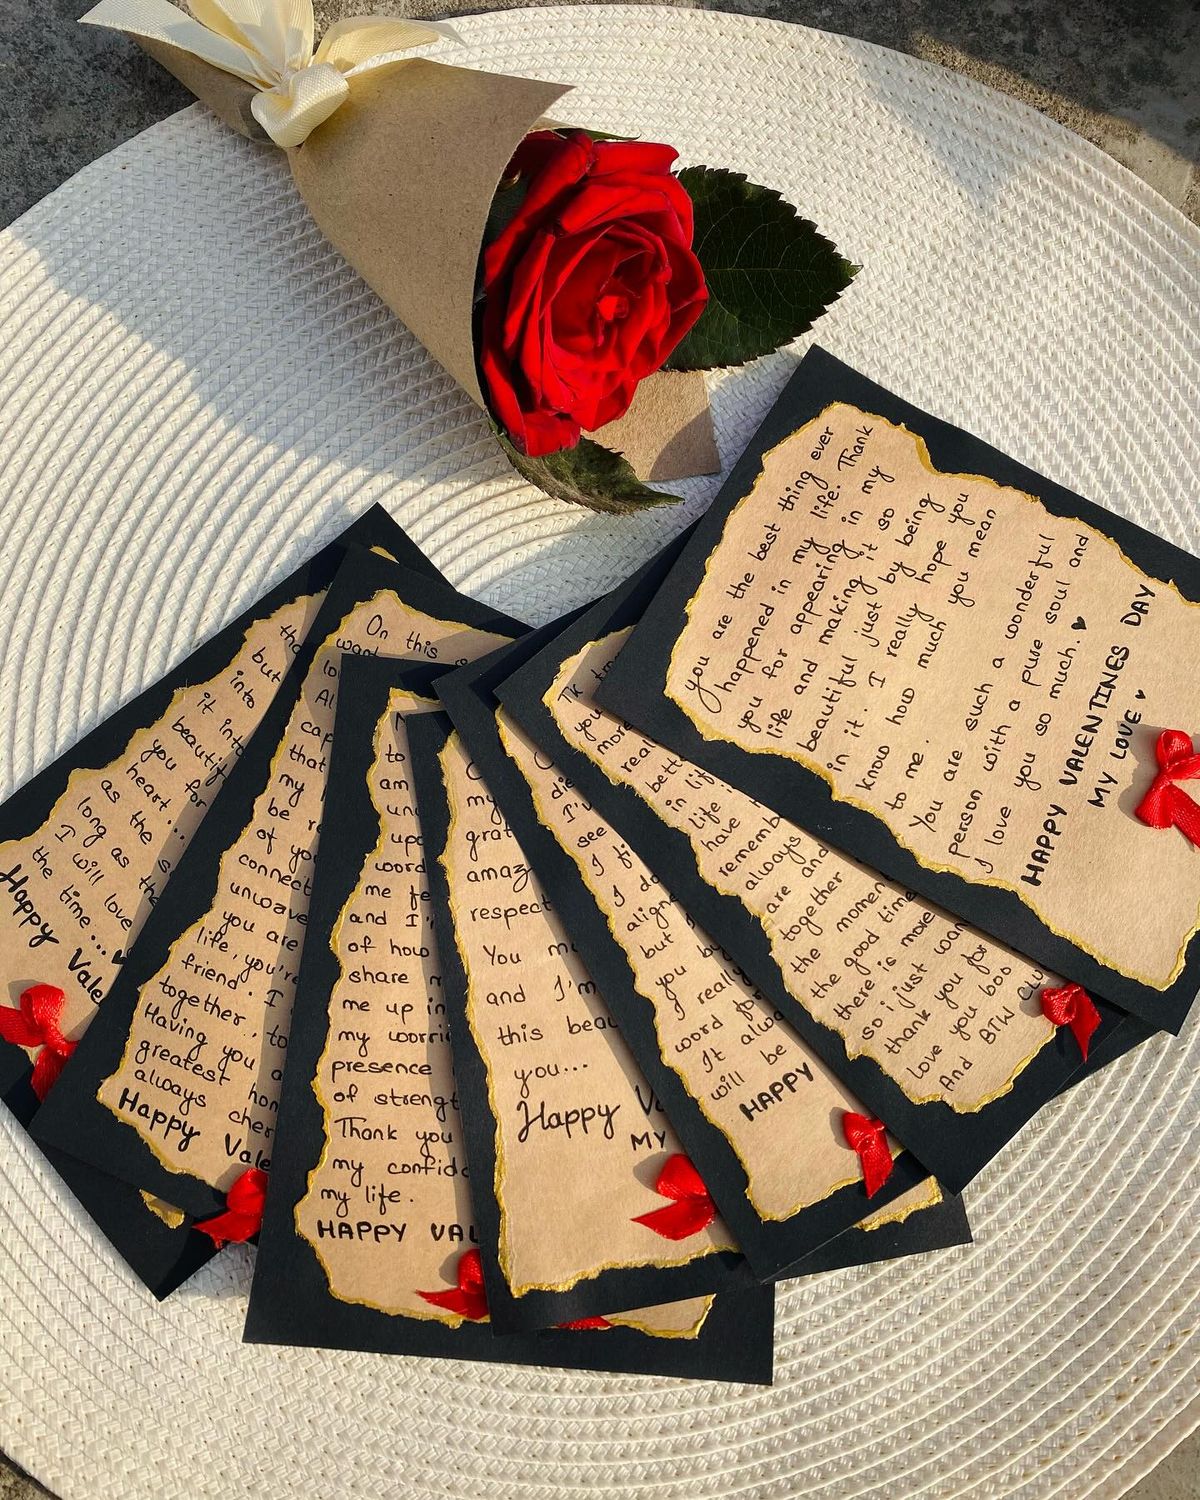 you are the best thing ever
happened in my life. Thank
you for appearing in my
life and making it so
beautiful just by being
in it. I really hope you
know how much you mean
to me.
You are such a wonderful
person with a pure soul and
I love you so much. ♥
HAPPY VALENTINES DAY
MY LOVE ♥
you
more
real
bett
in lif
life i
have
rememb
always
are and
together
the momen
the good time
there is more
so i just wan
thank you for
love you boo
And BTW CLU
die
I've
see
I fi
I do
aligne
but I
you by
I really
word for
It alwa
will be
HAPPY
my
grat
amaz
respect
You m
and I'm
this beau
you...
Happy V
MY
to
am
und
upo
word
me fe
and I'
of how
share m
me up in
my worri
presence
of strengt
Thank you
my confid
my life.
HAPPY VAL
On this
want
lo
Al
cap
that
my l
be r
of yo
connect
unwave
you are
life, you're
friend. I
together., to
Having you a
greatest hon
always cher
Happy Vale
tha
but
into
it into
beautif
you for
heart...
as the s
long as the
I will love
the time... ♥
Happy Vale